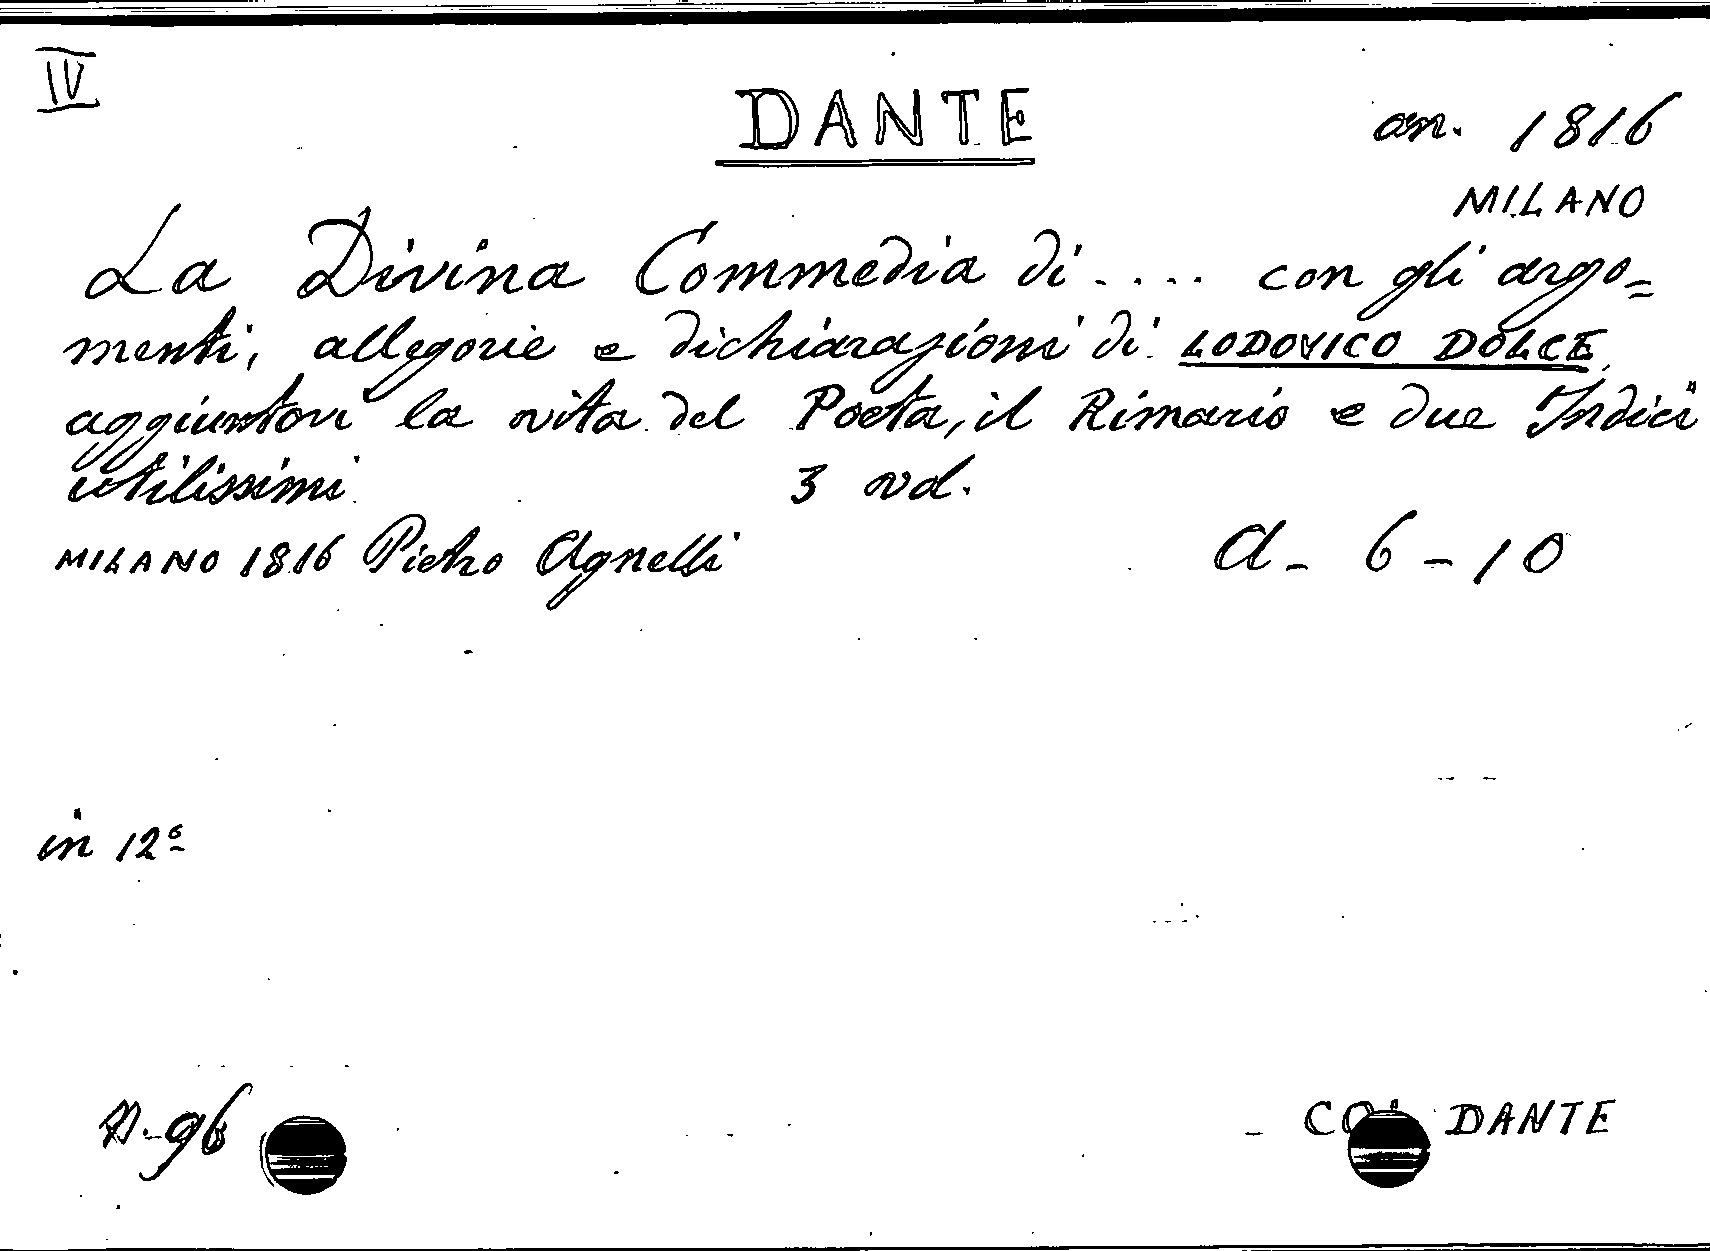 IV
DANTE
an. 1816
MILANO
La Divina Commedia di .... con gli argo=
menti, allegorie e dichiarazioni di LODOVICO DOLCE
aggiuntovi la vita del Poeta, il Rimario e due Indici
utilissimi 3 vol.
MILANO 1816 Pietro Agnelli a - 6 - 10
in 12º
DANTE